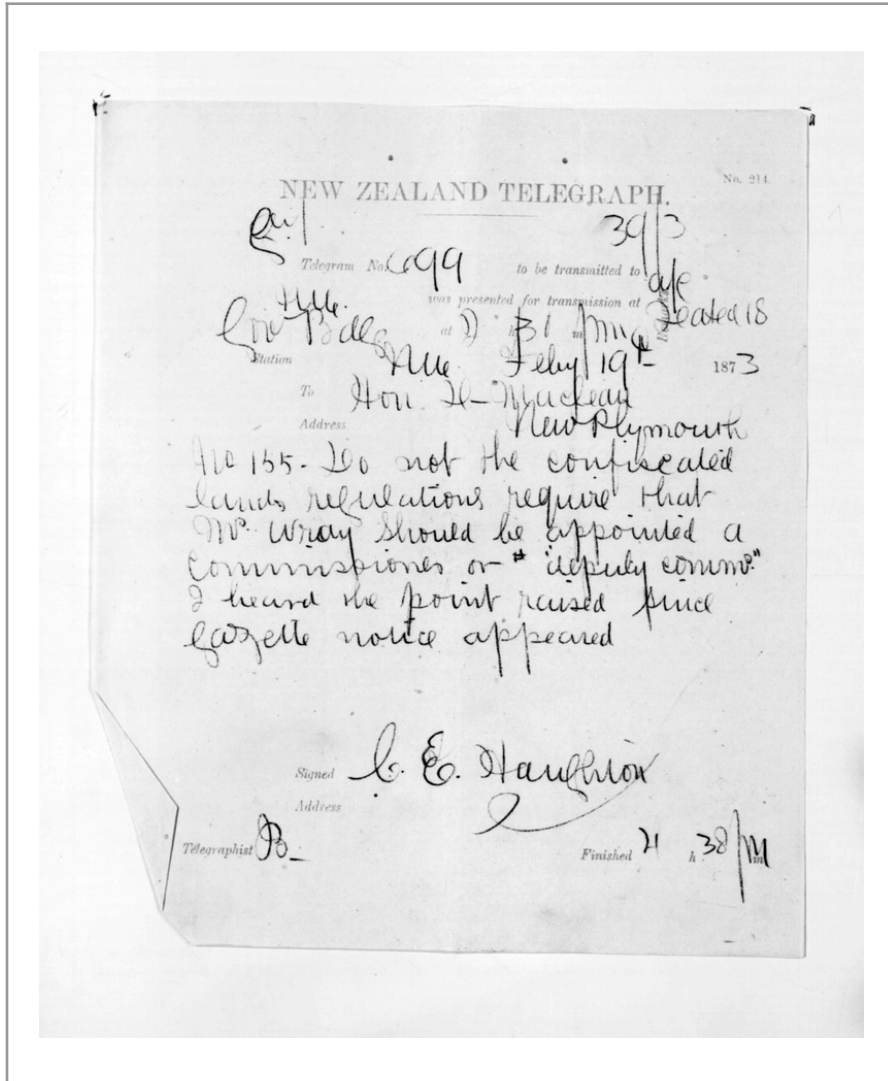 No. 214.
NEW ZEALAND TELEGRAPH.
39/3
Telegram No. 699 to be transmitted to
was presented for transmission at
Gov Bdgs at h 31 m dated 18
Station Feby 19th 1873
To Hon. D- Maclean
Address New Plymouth
No 155. Do not the confiscated
lands regulations require that
Mr. Wray should be appointed a
commissioner or "deputy commr."
I heard the point raised since
Gazette notice appeared
Signed C. E. Haughton
Address
Telegraphist B- Finished h 38 m